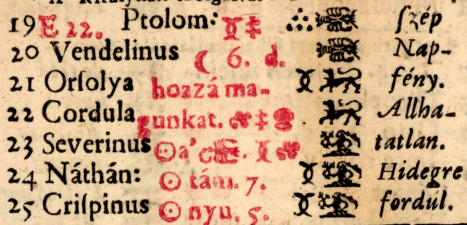 19 E 22. Ptolom: ſzép
20 Vendelinus ☾ 6. d. Nap-
21 Orſolya hozzá ma- fény.
22 Cordula gunkat. Allha-
23 Severinus ☉ a' tatlan.
24 Náthán: ☉ tám. 7. Hidegre
25 Criſpinus ☉ nyu. 5. fordúl.